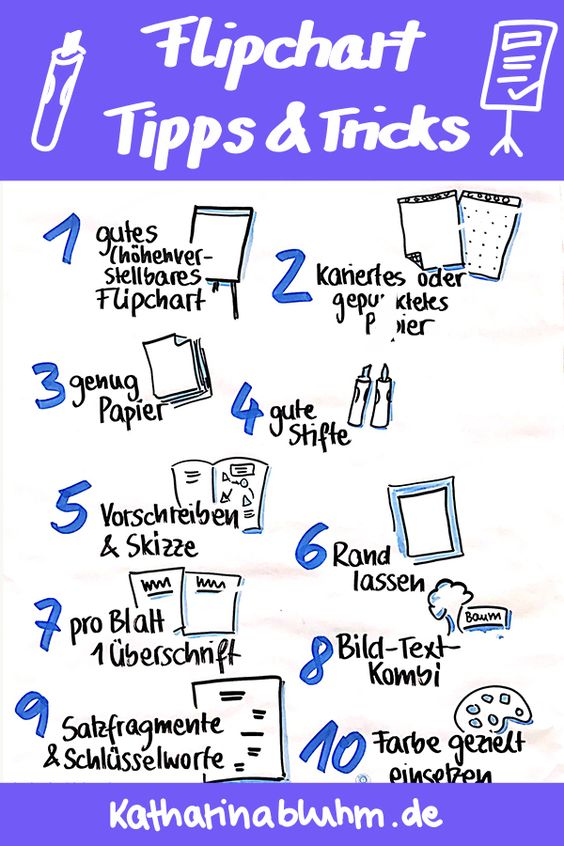 Flipchart
Tipps & Tricks
1 gutes
(höhenver-
stellbares
Flipchart
2 kariertes oder
gepunktetes
Papier
3 genug
Papier
4 gute
Stifte
5 Vorschreiben
& Skizze
6 Rand
lassen
7 pro Blatt
1 Überschrift
Baum
8 Bild-Text-
Kombi
9 Satzfragmente
& Schlüsselworte
10 Farbe gezielt
einsetzen
katharinabluhm.de